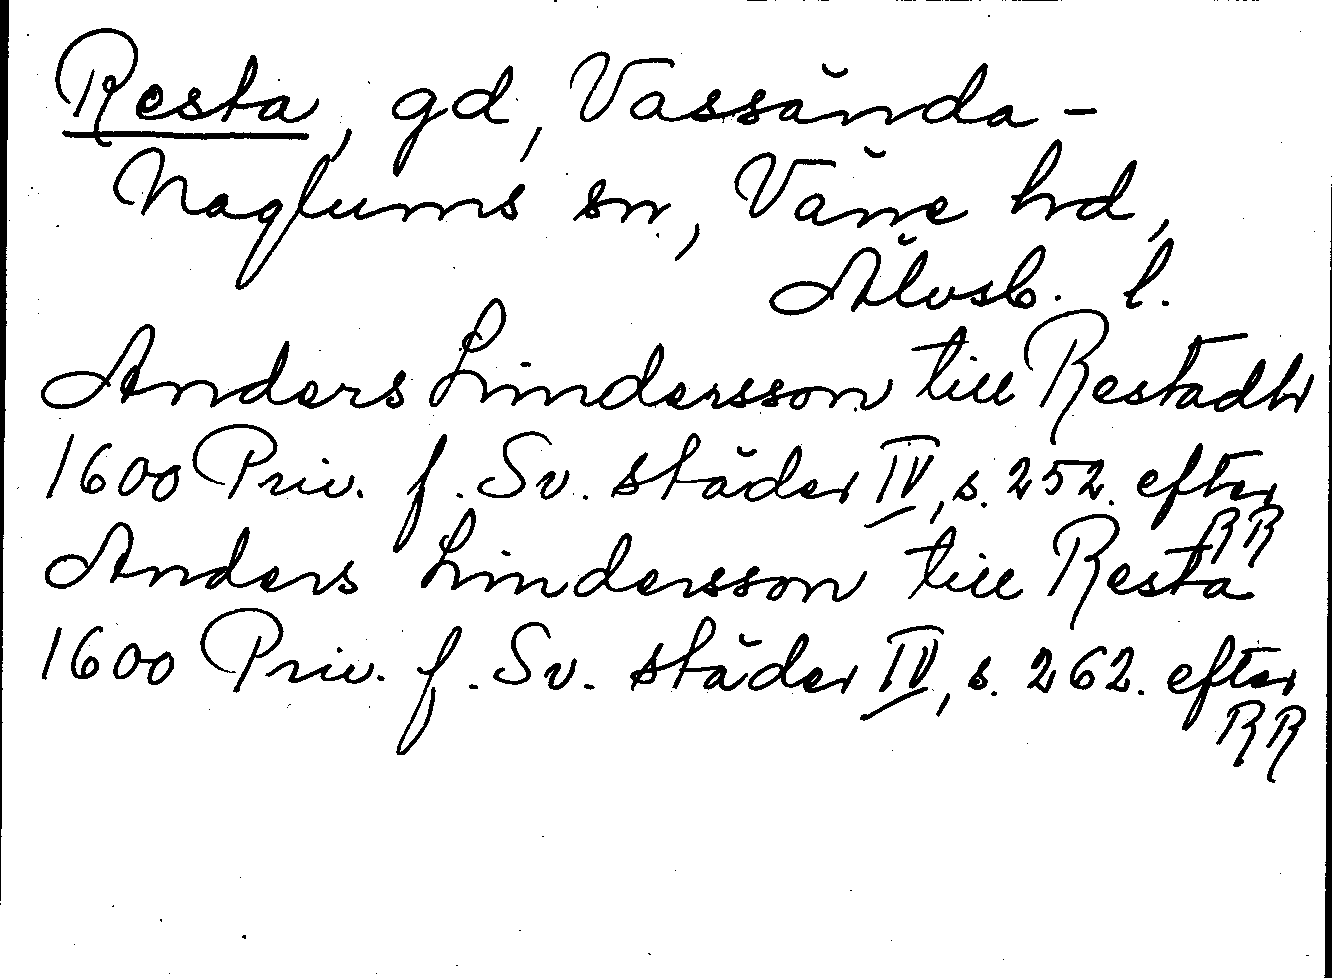 Resta, gd, Vassända-
Naglums sn, Väne hd,
Älvsb. l.
Anders Lindersson till Restadh
1600 Priv. f. Sv. städer IV, s. 252. efter
RR
Anders Lindersson till Resta
1600 Priv. f. Sv. städer IV, s. 262. efter
RR